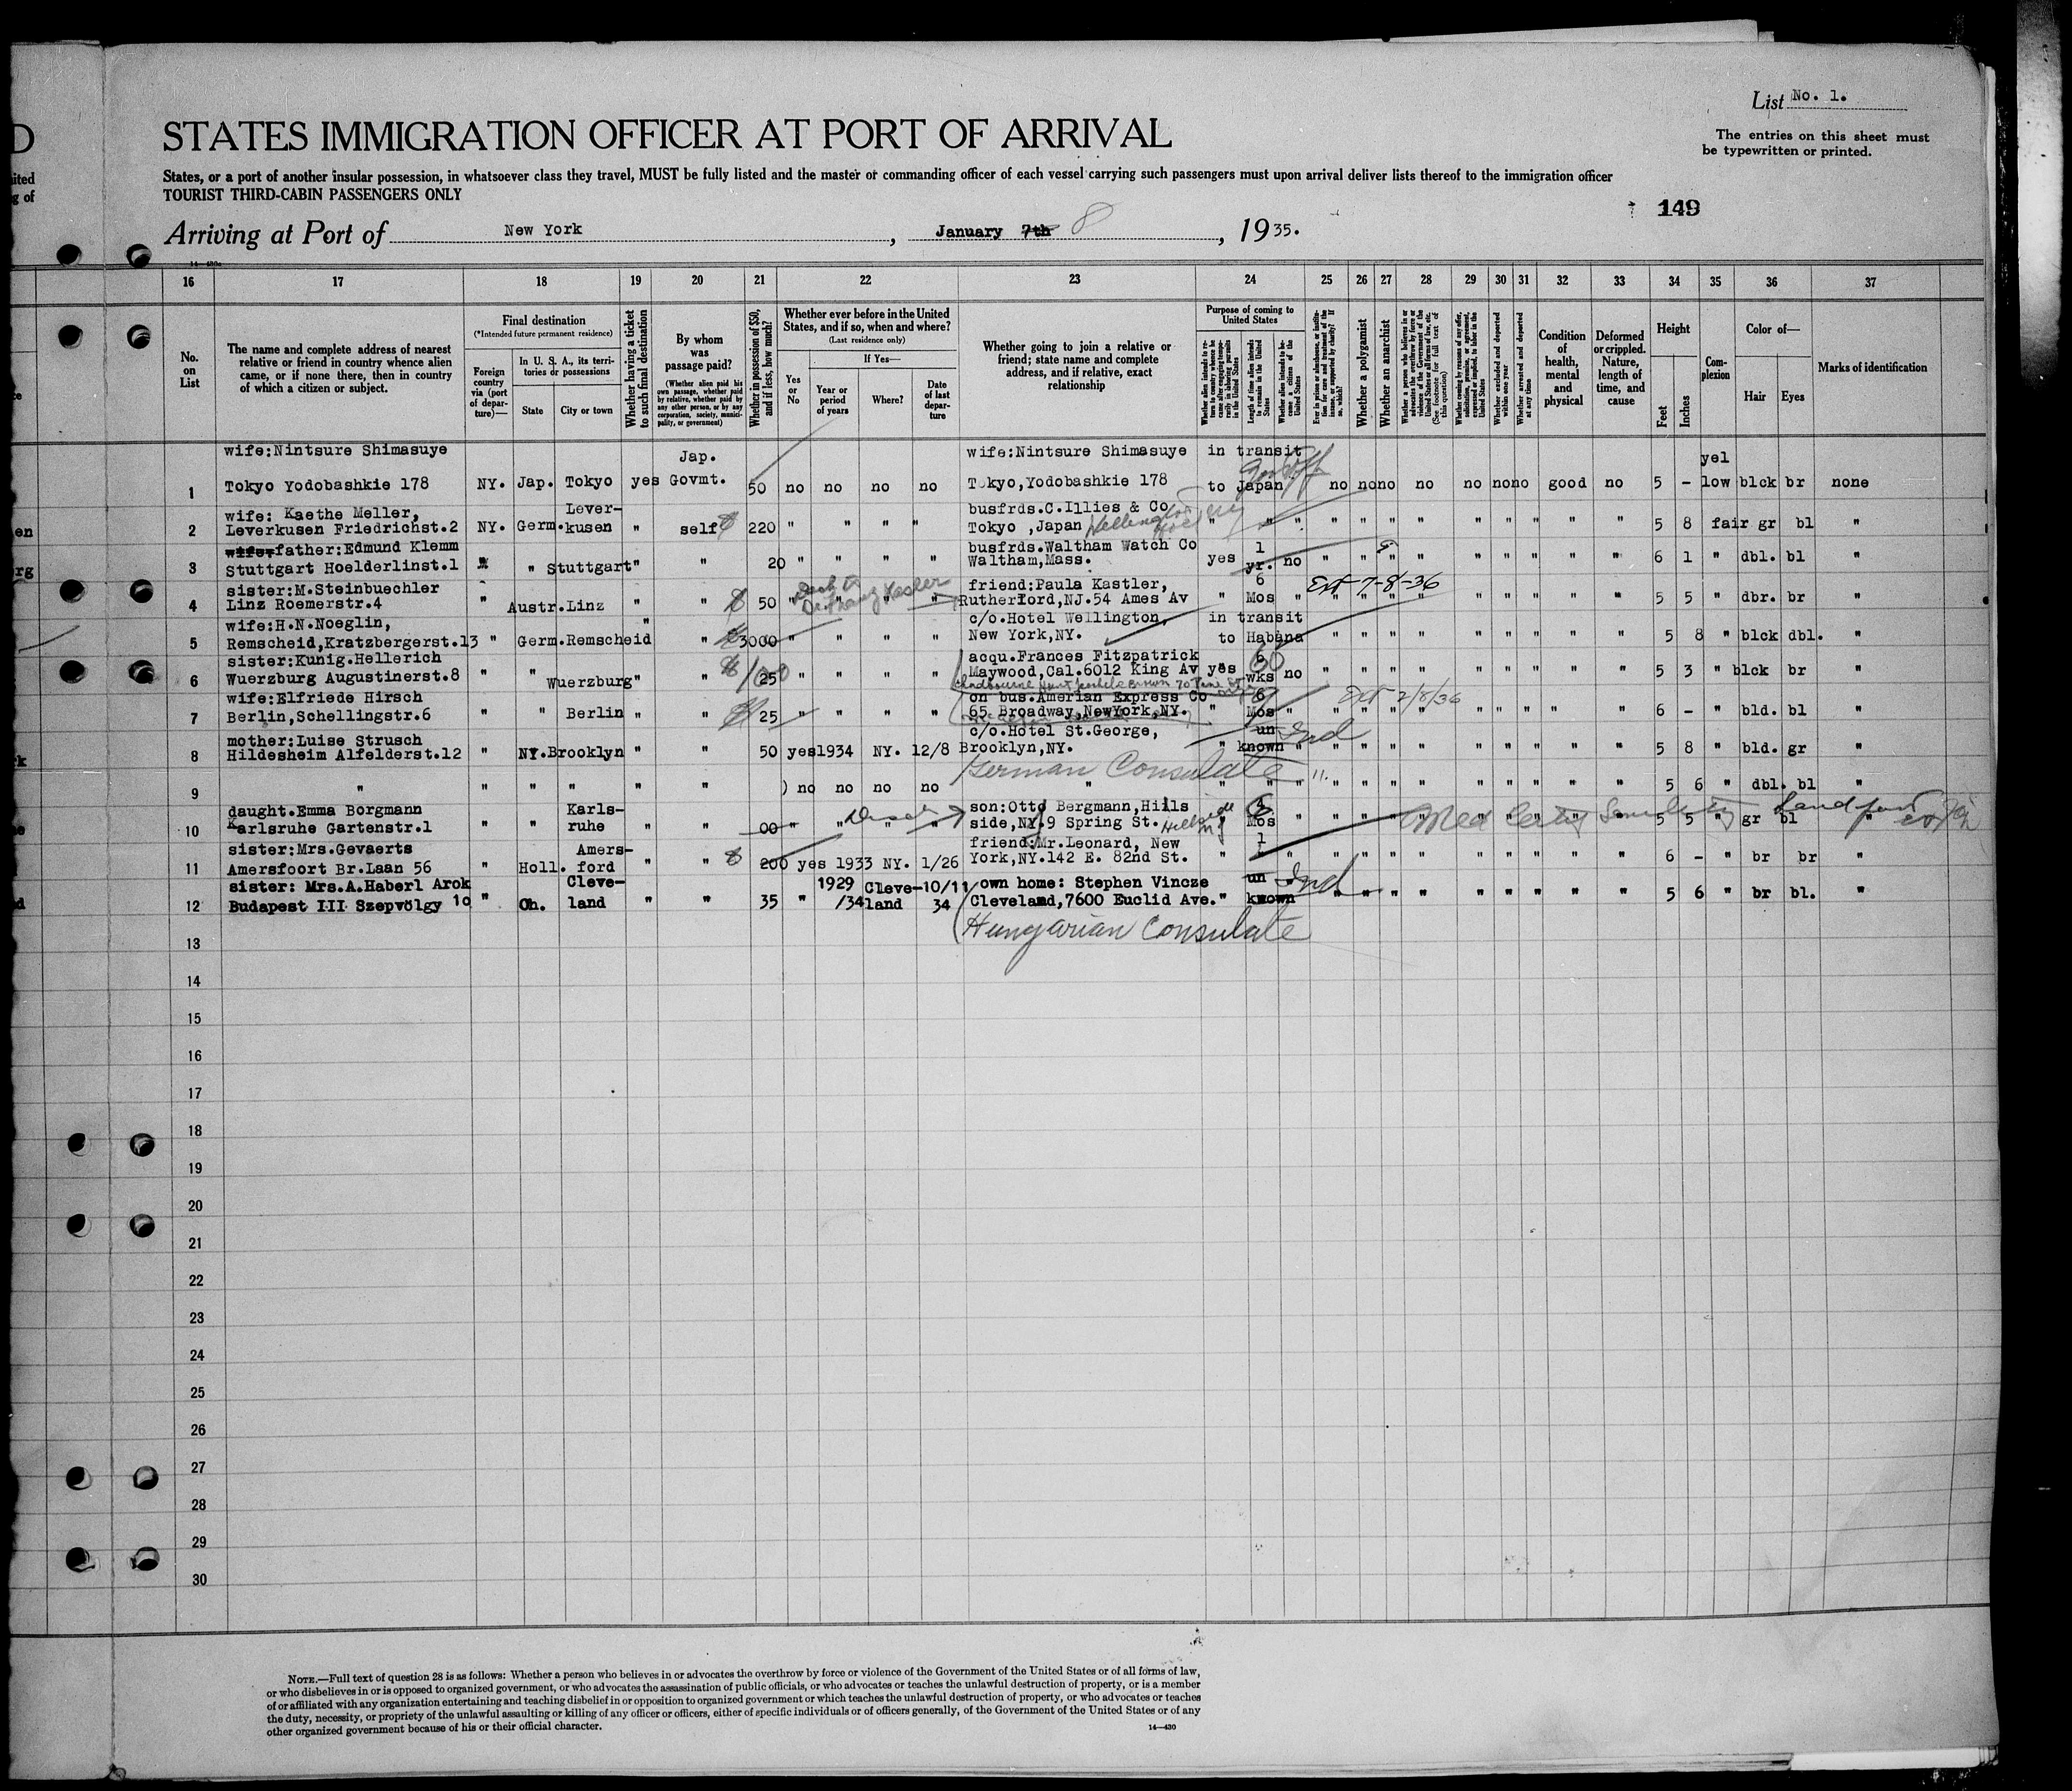 List No. 1.
STATES IMMIGRATION OFFICER AT PORT OF ARRIVAL
The entries on this sheet must
be typewritten or printed.
States, or a port of another insular possession, in whatsoever class they travel, MUST be fully listed and the master or commanding officer of each vessel carrying such passengers must upon arrival deliver lists thereof to the immigration officer
TOURIST THIRD-CABIN PASSENGERS ONLY
149
Arriving at Port of New York, January 7th 8, 1935.
16 17 18 19 20 21 22 23 24 25 26 27 28 29 30 31 32 33 34 35 36 37
No. on List
The name and complete address of nearest relative or friend in country whence alien came, or if none there, then in country of which a citizen or subject.
Final destination
(*Intended future permanent residence)
Foreign country via (port of departure)—
In U. S. A., its territories or possessions
State
City or town
Whether having a ticket to such final destination
By whom was passage paid?
(Whether alien paid his own passage, whether paid by relative, whether paid by any other person, or by any corporation, society, municipality, or government)
Whether in possession of $50, and if less, how much?
Whether ever before in the United States, and if so, when and where?
(Last residence only)
If Yes—
Yes or No
Year or period of years
Where?
Date of last departure
Whether going to join a relative or friend; state name and complete address, and if relative, exact relationship
Purpose of coming to United States
Length of time alien intends to remain in the United States
Whether alien intends to become a citizen of the United States
Whether a polygamist
Whether an anarchist
Whether excluded and deported within one year
Whether arrested and deported at any time
Condition of health, mental and physical
Deformed or crippled. Nature, length of time, and cause
Height
Feet
Inches
Complexion
Color of—
Hair
Eyes
Marks of identification
wife:Nintsure Shimasuye Jap. wife:Nintsure Shimasuye in transit yel
1 Tokyo Yodobashkie 178 NY. Jap. Tokyo yes Govmt. 50 no no no no Tokyo,Yodobashkie 178 to Japan no no no no no no no good no 5 - low blck br none
wife: Kaethe Meller, Lever- busfrds.C.Illies & Co
2 Leverkusen Friedrichst.2 NY. Germ. kusen " self 220 " " " " Tokyo ,Japan " " " " " " " " " " " " 5 8 fair gr bl "
wifer father:Edmund Klemm busfrds.Waltham Watch Co 1
3 Stuttgart Hoelderlinst.1 " " Stuttgart " " 20 " " " " Waltham,Mass. yes yr. no " " " " " " " " " 6 1 " dbl. bl "
sister:M.Steinbuechler friend:Paula Kastler, 6 Ext 7-8-36
4 Linz Roemerst.4 " Austr.Linz " " 50 " " " " Rutherford,NJ.54 Ames Av " Mos " " " " " " " " " " 5 5 " dbr. br "
wife:H.N.Noeglin, c/o.Hotel Wellington, in transit
5 Remscheid,Kratzbergerst.13 " Germ.Remscheid " " 3000 " " " " New York,NY. to Habana " " " " " " " " " 5 8 " blck dbl. "
sister:Kunig.Hellerich acqu.Frances Fitzpatrick 60
6 Wuerzburg Augustinerst.8 " " Wuerzburg " " 25 100 " " " " Maywood,Cal.6012 King Av yes wks no " " " " " " " " " 5 3 " blck br "
wife:Elfriede Hirsch on bus.Amerian Express Co 6 Ext 7/8/36
7 Berlin,Schellingstr.6 " " Berlin " " 25 " " " " 65 Broadway,NewYork,NY. " Mos " " " " " " " " " " 6 - " bld. bl "
mother:Luise Strusch c/o.Hotel St.George, un Ind
8 Hildesheim Alfelderst.12 " NY.Brooklyn " " 50 yes 1934 NY. 12/8 Brooklyn,NY. " known " " " " " " " " " " 5 8 " bld. gr "
German Consulate
9 " " " " " " ) no no no no " " " " " " " " " " " " " 5 6 " dbl. bl "
daught.Emma Borgmann Karls- son:Otto Bergmann,Hills
10 Karlsruhe Gartenstr.1 " " ruhe " " 00 " " " " side,NY.9 Spring St. " Mos " " " " " " " " " " 5 5 " gr bl "
Med Certif Senility
sister:Mrs.Gevaerts Amers- friend:Mr.Leonard, New 1
11 Amersfoort Br.Laan 56 " Holl. ford " " 200 yes 1933 NY. 1/26 York,NY.142 E. 82nd St. " " " " " " " " " " " " 6 - " br br "
sister: Mrs.A.Haberl Arok Cleve- 1929 Cleve- 10/11 own home: Stephen Vincze un Ind
12 Budapest III Szepvölgy 10 " Oh. land " " 35 " /34 land 34 Cleveland,7600 Euclid Ave. " known " " " " " " " " " 5 6 " br bl. "
Hungarian Consulate
13
14
15
16
17
18
19
20
21
22
23
24
25
26
27
28
29
30
NOTE.—Full text of question 28 is as follows: Whether a person who believes in or advocates the overthrow by force or violence of the Government of the United States or of all forms of law,
or who disbelieves in or is opposed to organized government, or who advocates the assassination of public officials, or who advocates or teaches the unlawful destruction of property, or is a member
of or affiliated with any organization entertaining and teaching disbelief in or opposition to organized government or which teaches the unlawful destruction of property, or who advocates or teaches
the duty, necessity, or propriety of the unlawful assaulting or killing of any officer or officers, either of specific individuals or of officers generally, of the Government of the United States or of any
other organized government because of his or their official character.
14—430